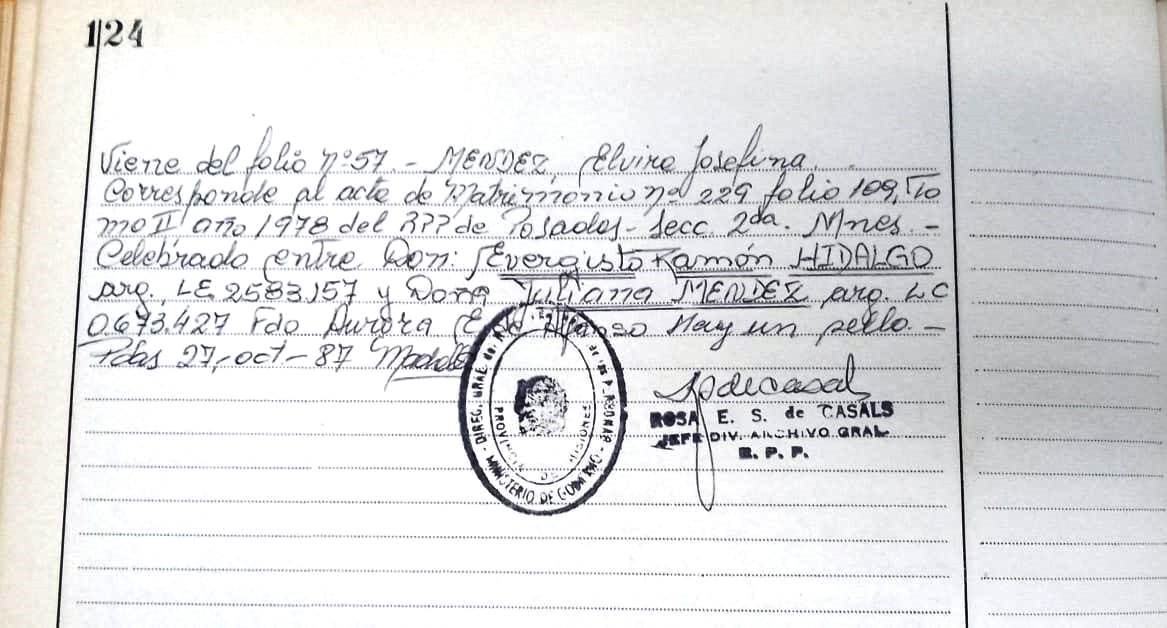 124
Viene del folio nº 57 - MENDEZ, Elvira Josefina.
Corresponde al acta de Matrimonio nº 229 folio 109, To
mo II año 1978 del RPP de Posadas - Secc. 2da. Mnes. -
Celebrado entre Don: Evergisto Ramón HIDALGO
arg. LE 2583157 y Doña Juliana MENDEZ arg. LC
0.673.427 Fdo Aurora Hay un sello -
Pdas 27, oct - 87
DIREC. GRAL. de PERSONAS
PROVINCIA DE MISIONES
MINISTERIO DE GOBIERNO
ROSA E. S. de CASALS
JEFE DIV. ARCHIVO GRAL
R. P. P.